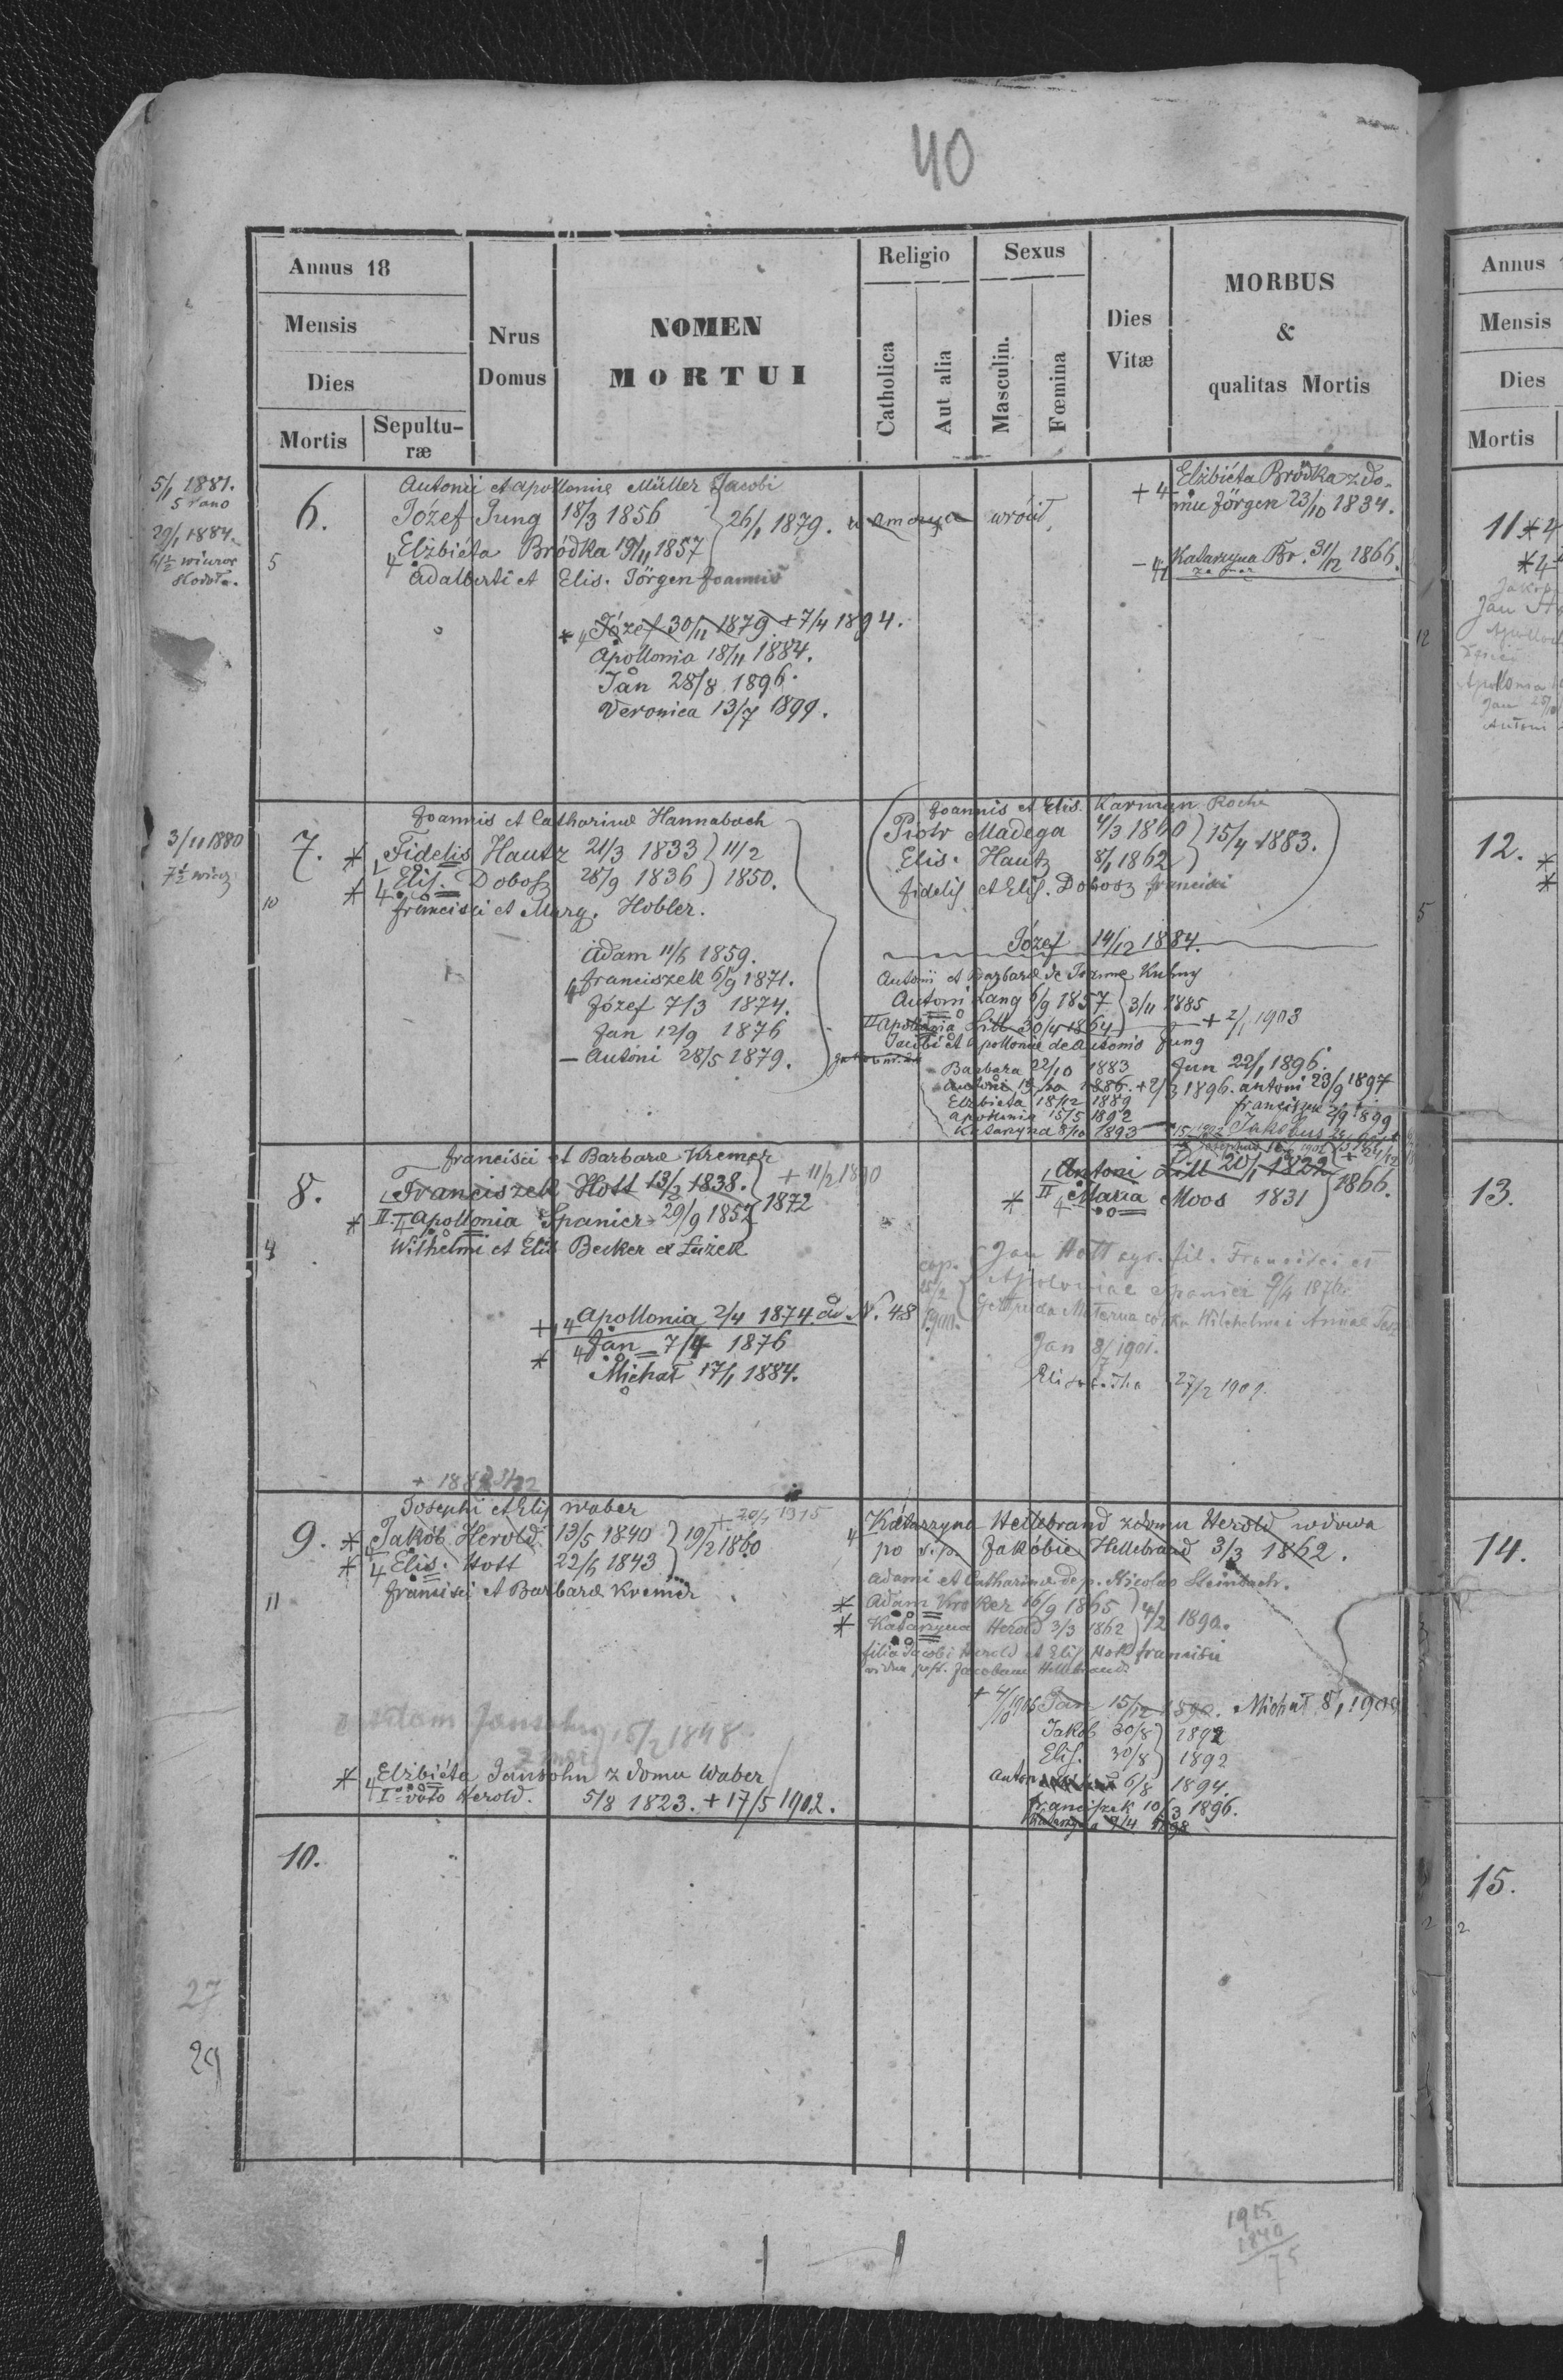 40
Annus 18
Mensis
Dies
Mortis
Sepultu-
ræ
Nrus
Domus
NOMEN
MORTUI
Religio
Catholica
Aut alia
Sexus
Masculin.
Fœmina
Dies
Vitæ
MORBUS
&
qualitas Mortis
5/1 1881.
29/1 1884.
5
6.
Antonii et Apolloniæ Müller Jacobi
Józef Jung 18/3 1856 } 26/1 1879.
wrócił
4 Elżbiéta Bródka 19/11 1857
Adalberti et Elis. Jörgen Joannis
+ 4 Elżbiéta Bródka z do-
mu Jörgen 23/10 1834.
- 4 Katarzyna Br. 31/12 1866.
* 4 Józef 30/11 1879 + 7/4 1894.
Apollonia 18/11 1884.
Jan 28/8 1896.
Veronica 13/7 1899.
3/11 1880
10
7.
Joannis et Catharinæ Hannabach
* Fidelis Hautz 21/3 1833 } 11/2
* 4 Elis. Dobosz 28/9 1836 } 1850.
Francisci et Marg. Hobler.
Adam 11/6 1859.
4 Franciszek 6/9 1871.
Józef 7/3 1874.
Jan 12/9 1876
- Antoni 28/5 1879.
Joannis et Elis. Karmyn Rochi
Piotr Madega 4/3 1860 } 15/4 1883.
Elis. Hautz 8/1 1862
Fidelis et Elis. Dobosz Francisci
Józef 14/12 1884.
Antonii et Barbaræ de Joanne Kuhny
Antoni Lang 6/9 1857 } 3/11 1885
II Apollonia Litt 30/4 1864 + 2/1 1903
Jacobi et Apolloniæ de Antonio Jung
Barbara 22/10 1883
Jan 22/1 1896.
1886. + 2/3 1896. Antoni 23/9 1897
Elżbieta 18/12 1889
Franciszek 2/9 1899
Apollonia 15/5 1892
Katarzyna 8/10 1893
Jakobus
4
8.
Francisci et Barbaræ Kremer
Franciszek Hott 13/2 1838. } + 11/2 1890
1872
* II. Apollonia Spanier 29/9 1852
Wilhelmi et Elis Becker
Antoni Litt 20/1 1822 } 1866.
* II 4 Maria Moos 1831
+ 4 Apollonia 2/4 1874. ad N. 48
* 4 Jan 7/4 1876
Michał 17/1 1884.
cop.
25/2
1900.
Jan Hott agr. fil. Francisci et
Apoloniae Spanier 7/4 1876
Gertruda Materna córka Wilchelma i Annae
Jan 8/7 1901.
27/2 1902.
11
9.
Josephi et Elis Waber
* Jakób Herold 13/5 1840 } 19/2 1860
+ 20/4 1915
* 4 Elis. Hott 22/6 1843
Francisci et Barbaræ Kremer
4 Katarzyna Hellebrand z domu Herold wdowa
po ś.p. Jakóbie Hellebrand 3/3 1862.
Adami et Catharinæ de p. Nicolao Steinbach.
* Adam Kroker 16/9 1865 } 4/2 1890.
* Katarzyna Herold 3/3 1862
filia Jacobi Herold et Elis Hott Francisci
vidua post. Jacobum Hellebrand
Jan 15/12 1890. Michał 8/1 1900
Jakób 30/8 } 1892
Elis. 30/8 } 1892
Anton 6/8 1894.
Franciszek 10/3 1896.
Katarzyna 9/4 1898
Adam Jansohn 15/2 1848.
* 4 Elżbiéta Jansohn z domu Waber
I voto Herold. 5/8 1823. + 17/5 1902.
10.
27
29
1915
1840
75
Annus
Mensis
Dies
Mortis
11
12.
13.
14.
15.